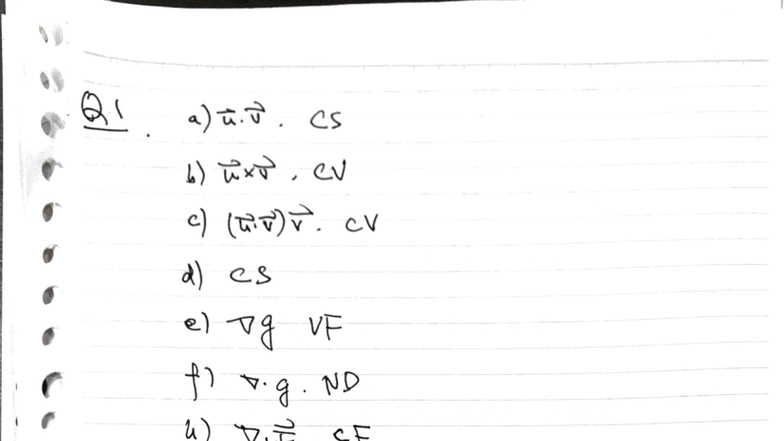 Q1. a) u⃗·v⃗. CS
b) u⃗×v⃗, CV
c) (u⃗·v⃗)v⃗. CV
d) CS
e) ∇g VF
f) ∇·g. ND
h) ∇·